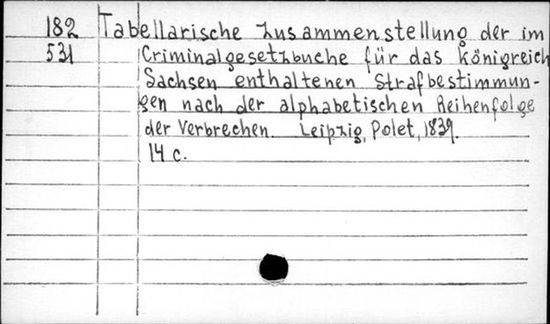 182 Tabellarische Zusammenstellung der im
531 Criminalgesetzbuche für das Königreich
Sachsen enthaltenen Strafbestimmun-
gen nach der alphabetischen Reihenfolge
der Verbrechen. Leipzig, Polet, 1839.
14 c.